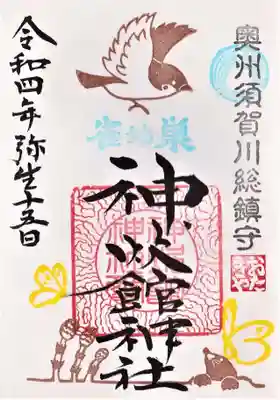 奥州須賀川総鎮守
雀始巣
神炊館神社
令和四年弥生十五日